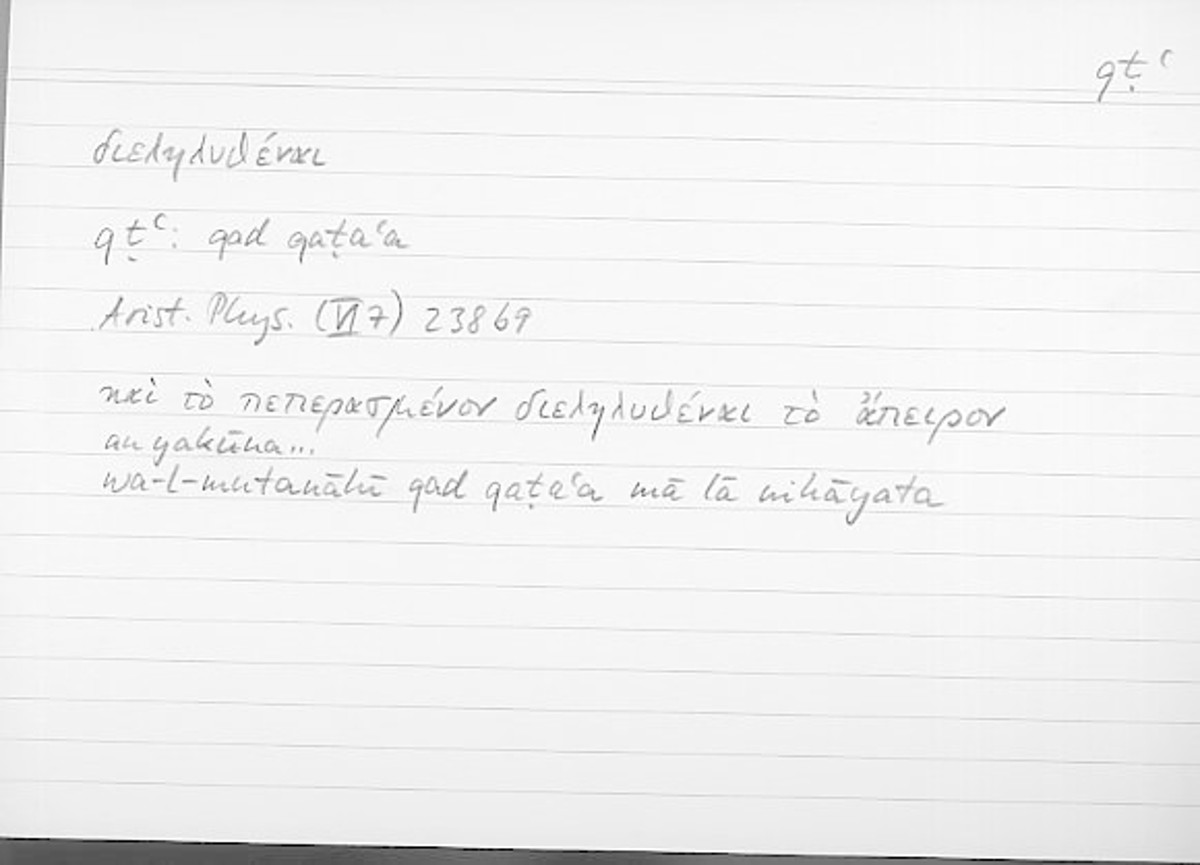 qṭʿ
διεληλυθέναι
qṭʿ: qad qaṭaʿa
Arist. Phys. (VI 7) 238b9
καὶ τὸ πεπερασμένον διεληλυθέναι τὸ ἄπειρον
an yakūna...
wa-l-mutanāhī qad qaṭaʿa mā lā nihāyata